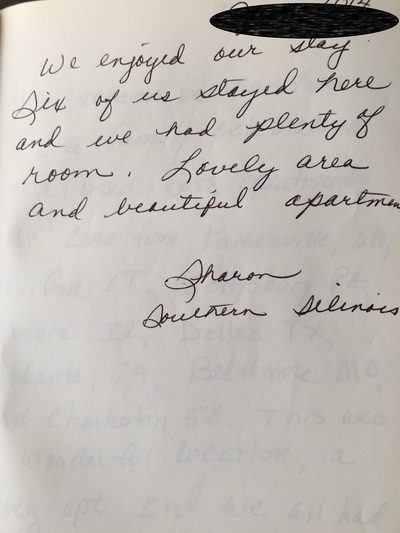 We enjoyed our stay
Six of us stayed here
and we had plenty of
room. Lovely area
and beautiful apartmen
Sharon
Southern Illinois